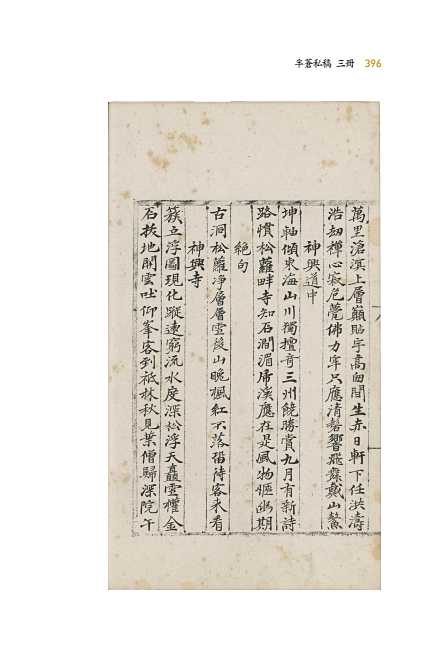 半蒼私稿 三冊 396
萬里滄溟上層巓貼宇高窓間生赤日軒下任洪濤
浩劫禪心寂危甍佛力牢只應清磬響飛舞戴山鰲
神興道中
坤軸傾東海山川獨擅奇三州饒勝賞九月有新詩
路慣松蘿畔寺知石澗湄應在是風物愜幽期
絶句
古洞松蘿淨層層雲山晩楓紅不落留待客來看
神興寺
簇立浮圖現化蹤遠窮流水度深松浮天矗金
石拔地開雲吐仰峯客到祗林秋見葉僧歸深院午